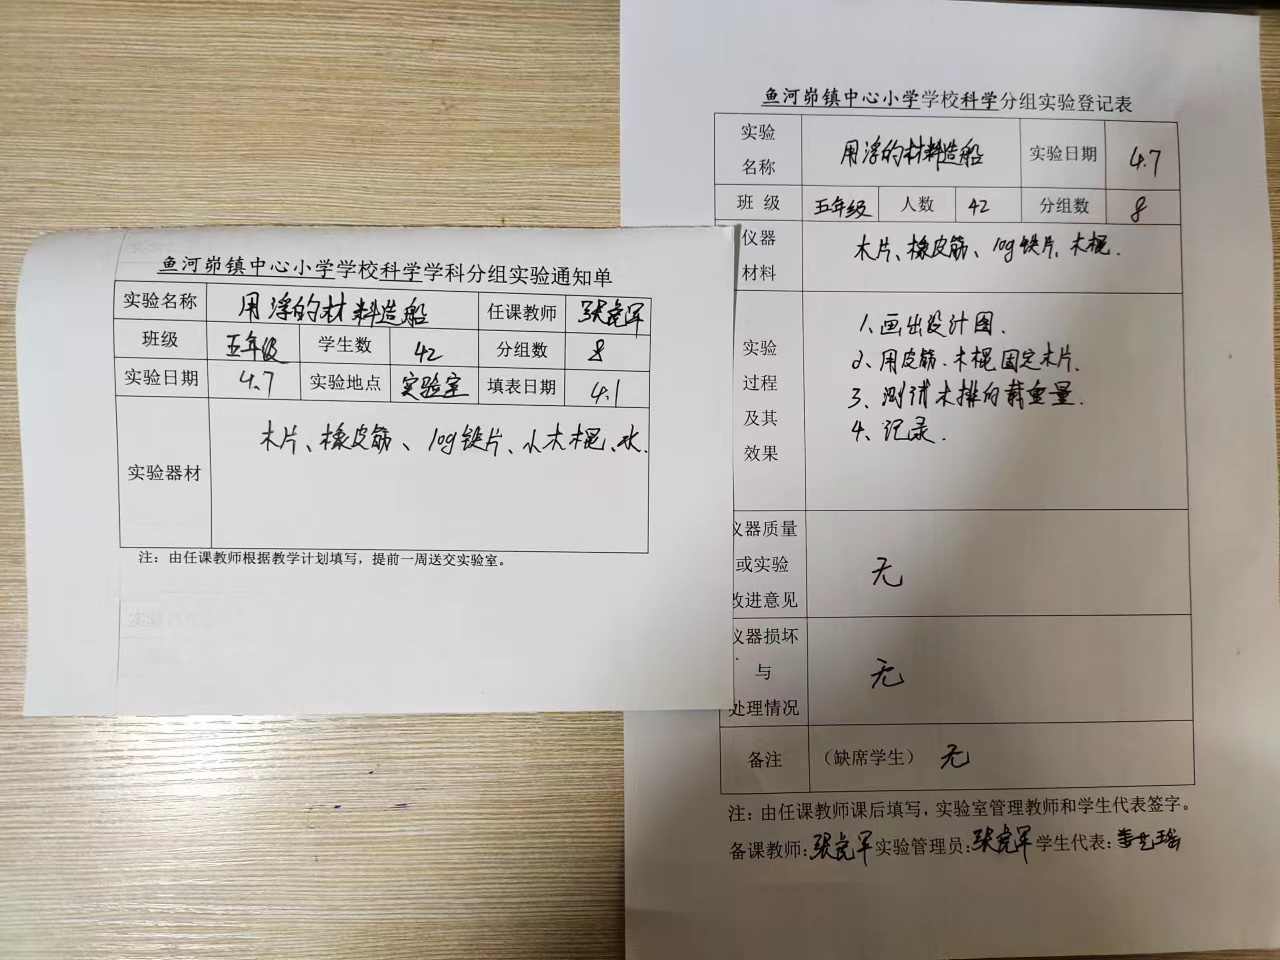 鱼河峁镇中心小学学校科学学科分组实验通知单
实验名称 用浮的材料造船 任课教师 张虎军
班级 五年级 学生数 42 分组数 8
实验日期 4.7 实验地点 实验室 填表日期 4.1
实验器材 木片、橡皮筋、10g铁片、小木棍、水.
注：由任课教师根据教学计划填写，提前一周送交实验室。
鱼河峁镇中心小学学校科学分组实验登记表
实验
名称 用浮的材料造船 实验日期 4.7
班 级 五年级 人数 42 分组数 8
仪器
材料 木片、橡皮筋、10g铁片、木棍.
实验
过程
及其
效果
1、画出设计图.
2、用皮筋、木棍固定木片.
3、测试木排的载重量.
4、记录.
仪器质量
或实验
改进意见 无
仪器损坏
与
处理情况 无
备注 （缺席学生） 无
注：由任课教师课后填写，实验室管理教师和学生代表签字。
备课教师：张虎军 实验管理员：张虎军 学生代表：